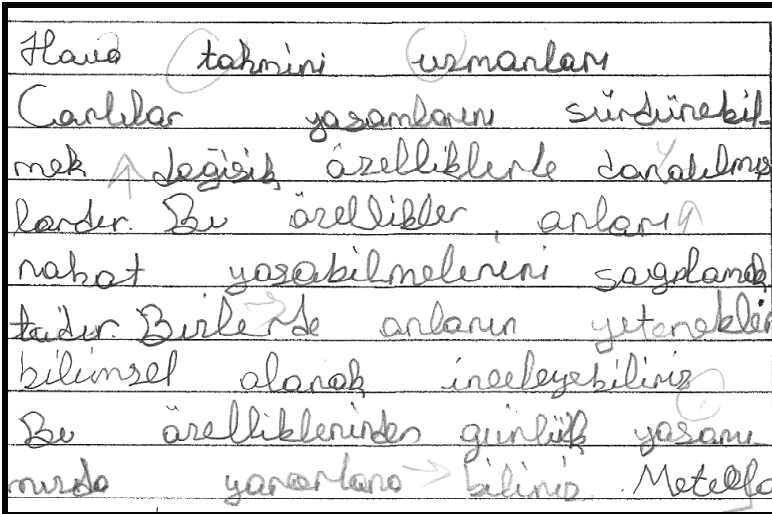 Hava tahmini uzmanları
Canlılar yaşamlarını sürdürebil-
mek değişik özelliklerle donatılmış
lardır. Bu özellikler, onların
rahat yaşabilmelerini sağlamak
tadır. Bizlerde onların yetenekleri
bilimsel olarak inceleyebiliriz
Bu özelliklerinden günlük yaşamı
mızda yararlana biliriz.